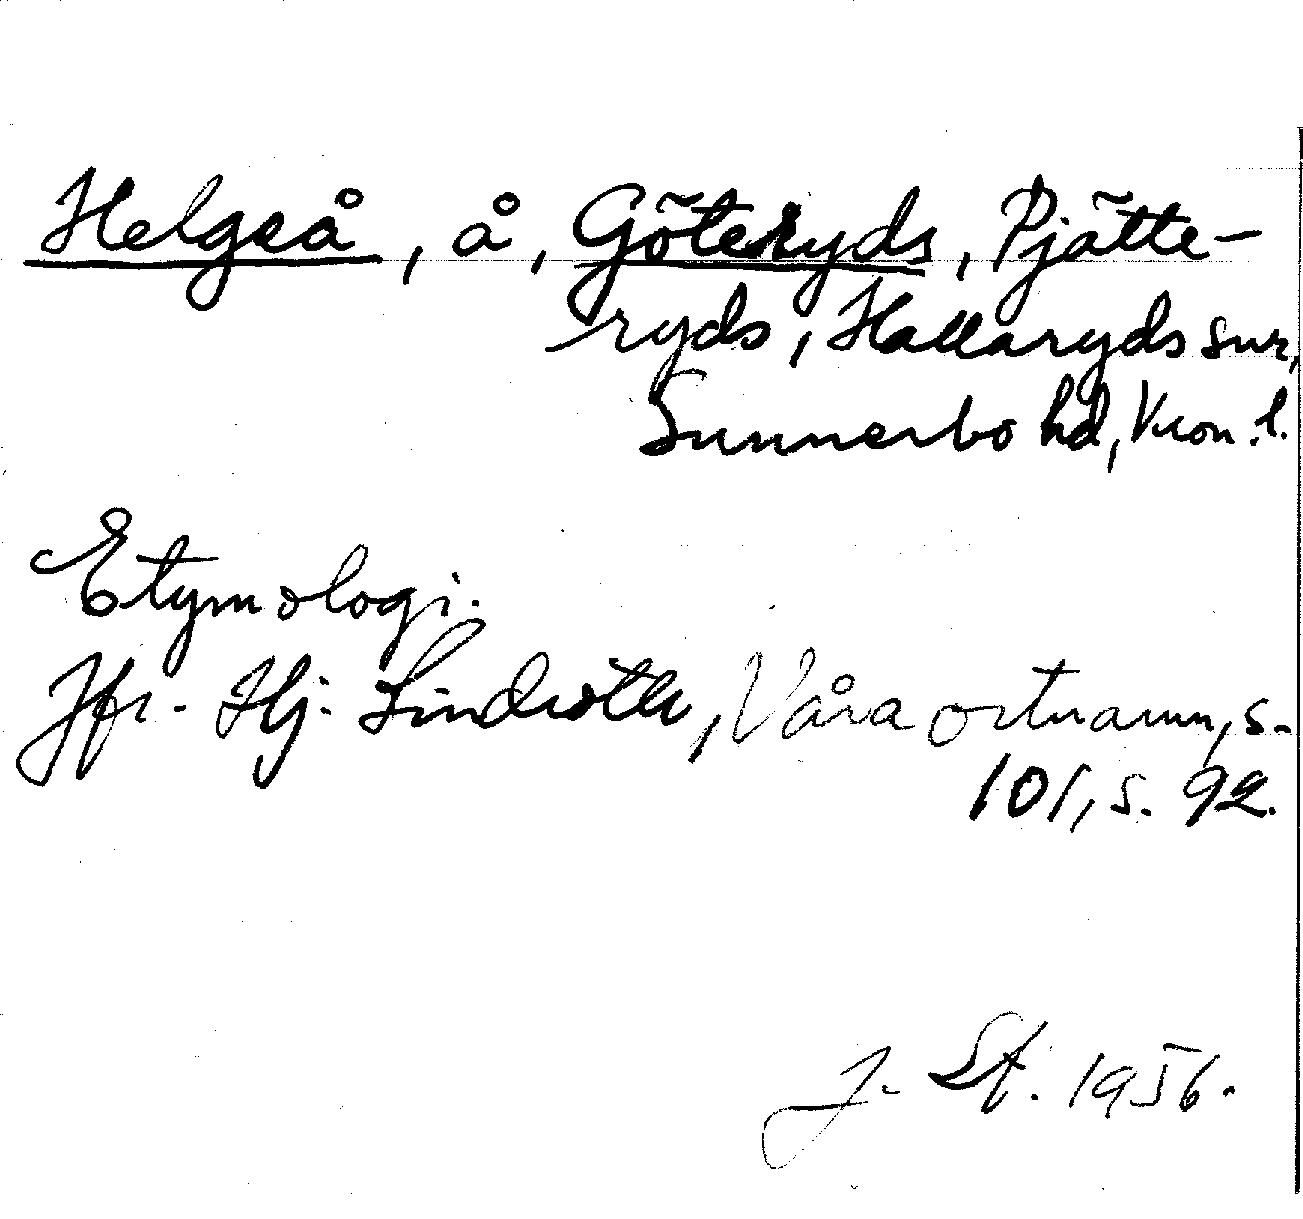 Helgeå, å, Göteryds, Pjätte-
ryds, Hallaryds snr,
Sunnerbo hd, Kron. l.
Etymologi.
Jfr. Hj. Lindroth, Våra ortnamn, s.
101, s. 92.
J. St. 1956.